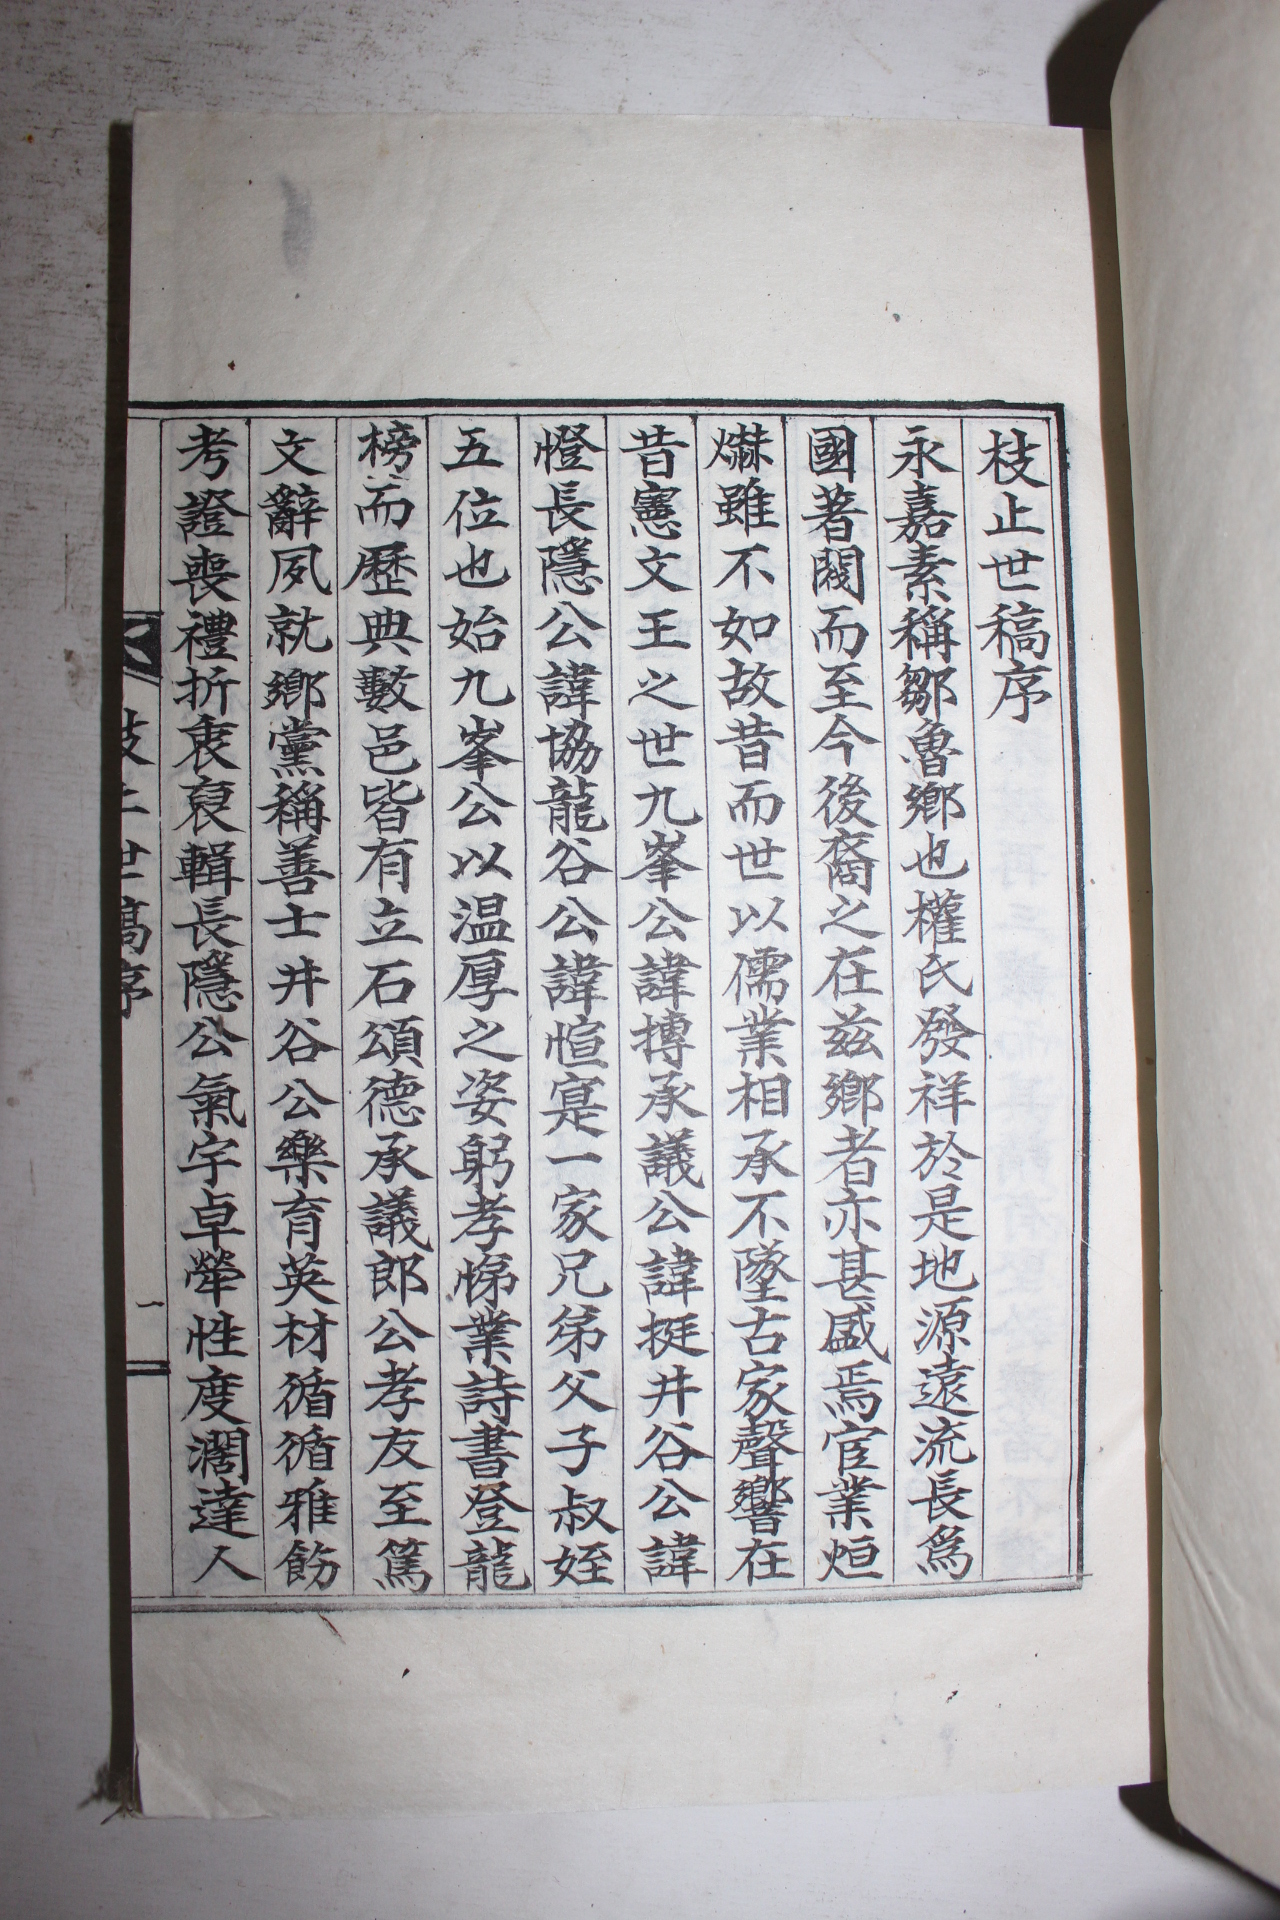 枝止世稿序
永嘉素稱鄒魯鄉也權氏發祥於是地源遠流長爲
國著閥而至今後裔之在茲鄉者亦甚盛焉宦業烜
爀雖不如故昔而世以儒業相承不墜古家聲響在
昔憲文王之世九峯公諱搏承議公諱挺井谷公諱
憕長隱公諱協龍谷公諱愃寔是一家兄弟父子叔姪
五位也始九峯公以温厚之姿躬孝悌業詩書登龍
榜而歷典數邑皆有立石頌德承議郎公孝友至篤
文辭夙就鄉黨稱善士井谷公樂育英材循循雅飭
考證喪禮折衷裒輯長隱公氣宇卓犖性度濶達人
枝止世稿序
一